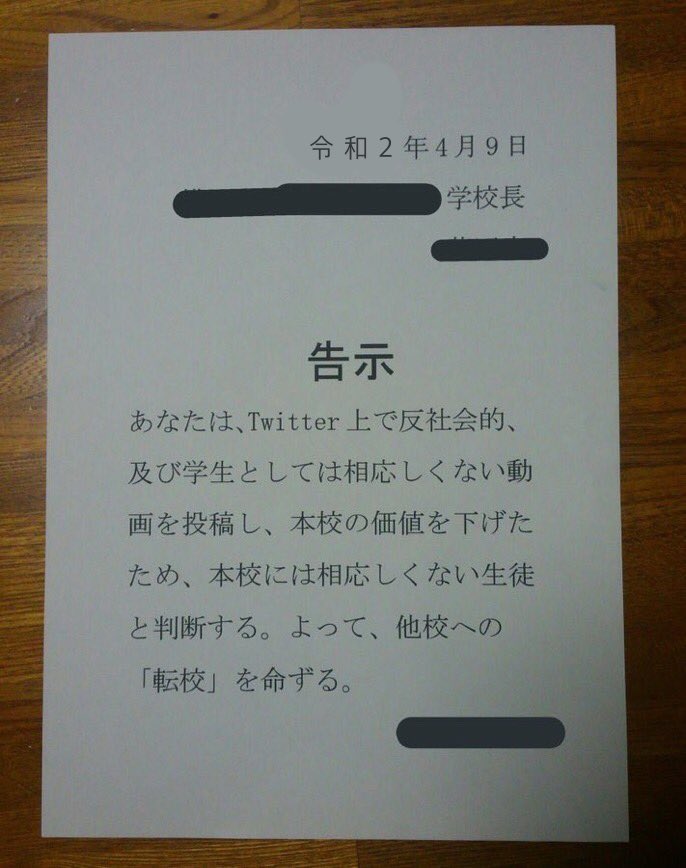 令和２年４月９日
学校長
告示
あなたは、Twitter上で反社会的、
及び学生としては相応しくない動
画を投稿し、本校の価値を下げた
ため、本校には相応しくない生徒
と判断する。よって、他校への
「転校」を命ずる。